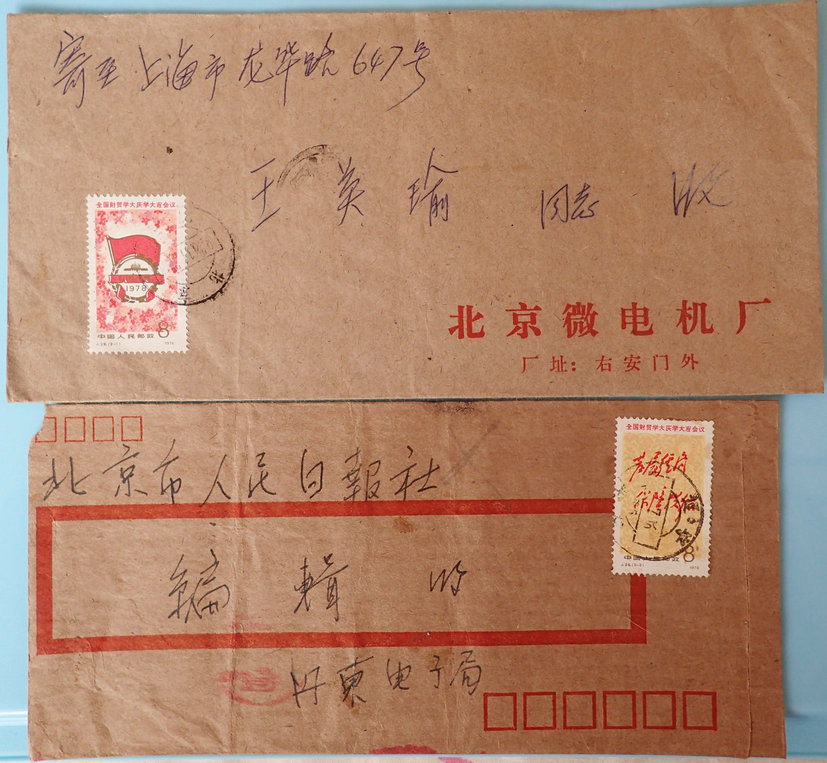 寄至上海市龙华路647号
王英瑜 同志 收
全国财贸学大庆学大寨会议
1978
8
中国人民邮政
J.28.(2-1) 1978
北京微电机厂
厂址：右安门外
北京市人民日報社
全国财贸学大庆学大寨会议
发展经济
保障供给
8
中国人民邮政
J.28.(2-2) 1978
编輯收
丹東电子局